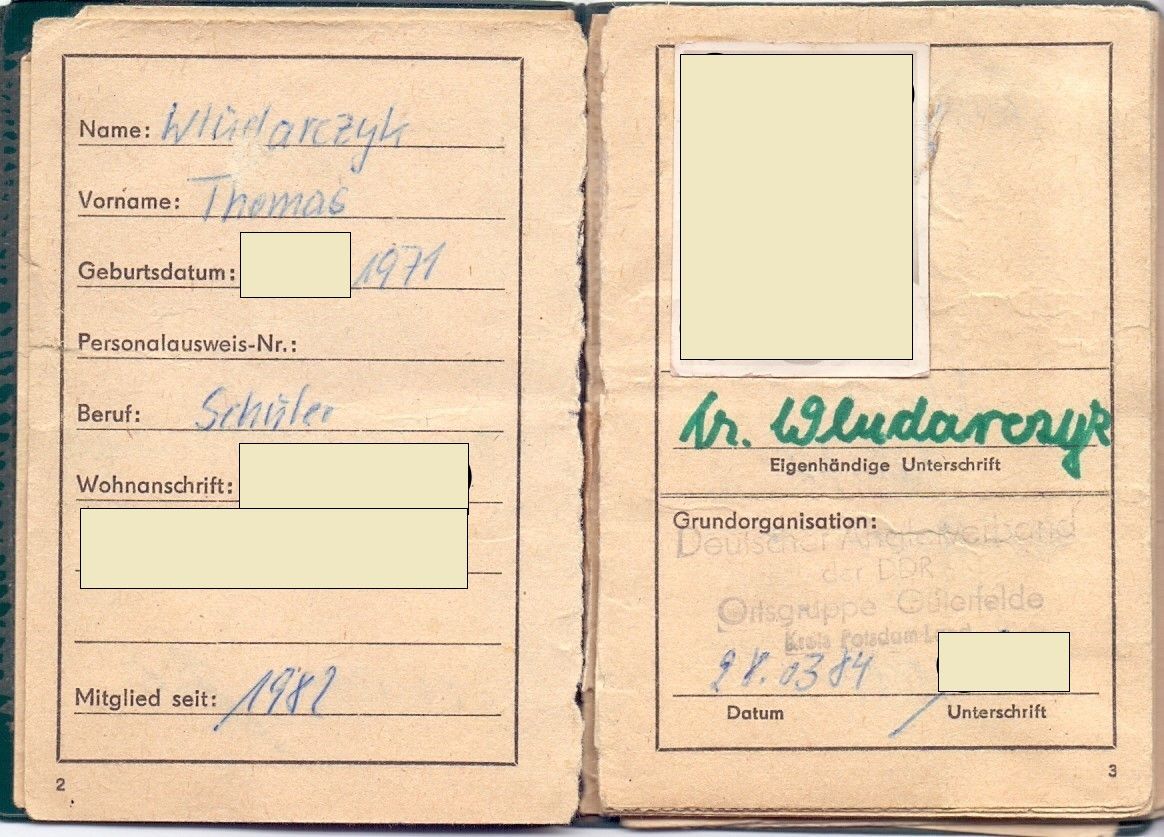 Name: Wludarczyk
Vorname: Thomas
Geburtsdatum: 1971
Personalausweis-Nr.:
Beruf: Schüler
Wohnanschrift:
Mitglied seit: 1982
2
Wludarczyk
Eigenhändige Unterschrift
Grundorganisation:
Deutscher Anglerverband
der DDR
Ortsgruppe Güterfelde
Kreis Potsdam-Land
28.03 84
Datum Unterschrift
3